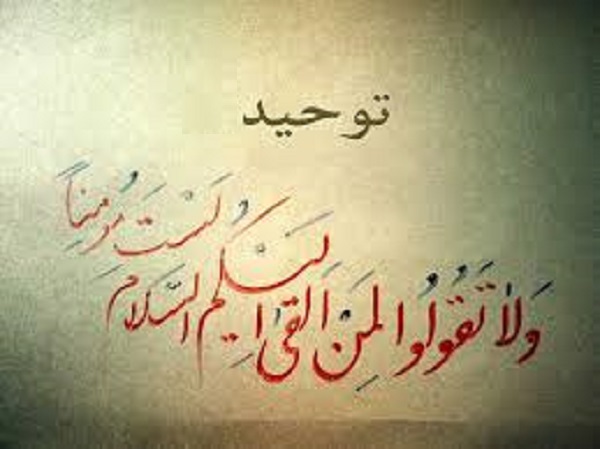 توحید
وَلاٰ تَقُولُوا لِمَنْ اَلْقىٰ اِلَیْکُمُ السَّلامَ
لَسْتَ مُؤْمِناً